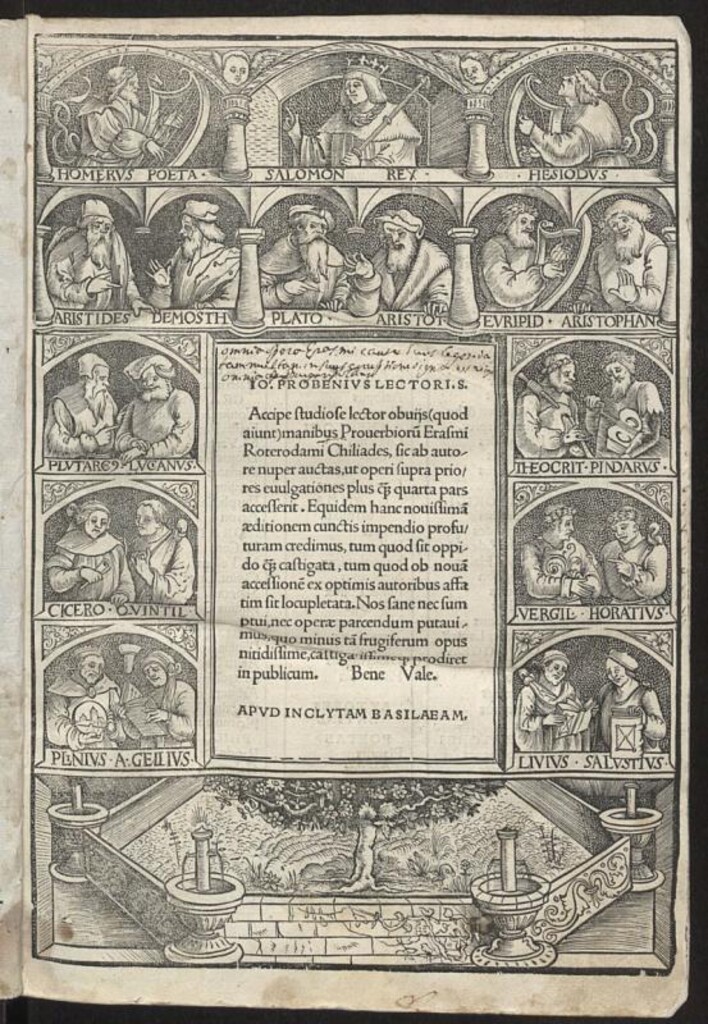 HOMERVS POETA · SALOMON REX · HESIODVS ·
ARISTIDES DEMOSTH PLATO · ARISTOT EVRIPID · ARISTOPHAN
PLVTARC9 · LVCANVS ·
THEOCRIT · PINDARVS ·
CICERO · QVINTIL
VERGIL · HORATIVS ·
PLNIVS · A · GELLIVS
LIVIVS · SALVSTIVS
omnia
IO. FROBENIVS LECTORI. S.
Accipe studiose lector obuijs (quod
aiunt) manibus Prouerbiorũ Erasmi
Roterodami Chiliades, sic ab auto-
re nuper auctas, ut operi supra prio/
res euulgationes plus q̃ quarta pars
accesserit. Equidem hanc nouissimã
æditionem cunctis impendio profu/
turam credimus, tum quod sit oppi-
do q̃ castigata, tum quod ob nouã
accessionẽ ex optimis autoribus affa
tim sit locupletata. Nos sane nec sum
ptui, nec operæ parcendum putaui-
mus, quo minus tã frugiferum opus
nitidissime, prodiret
in publicum. Bene Vale.
APVD INCLYTAM BASILAEAM.